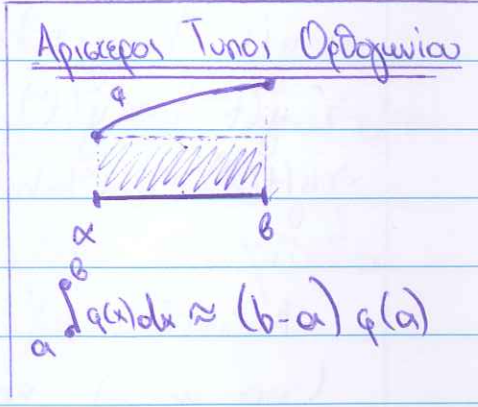 Αριστερος Τυπος Ορθογωνίου
φ
α β
∫_α^β φ(x)dx ≈ (b-a) φ(a)